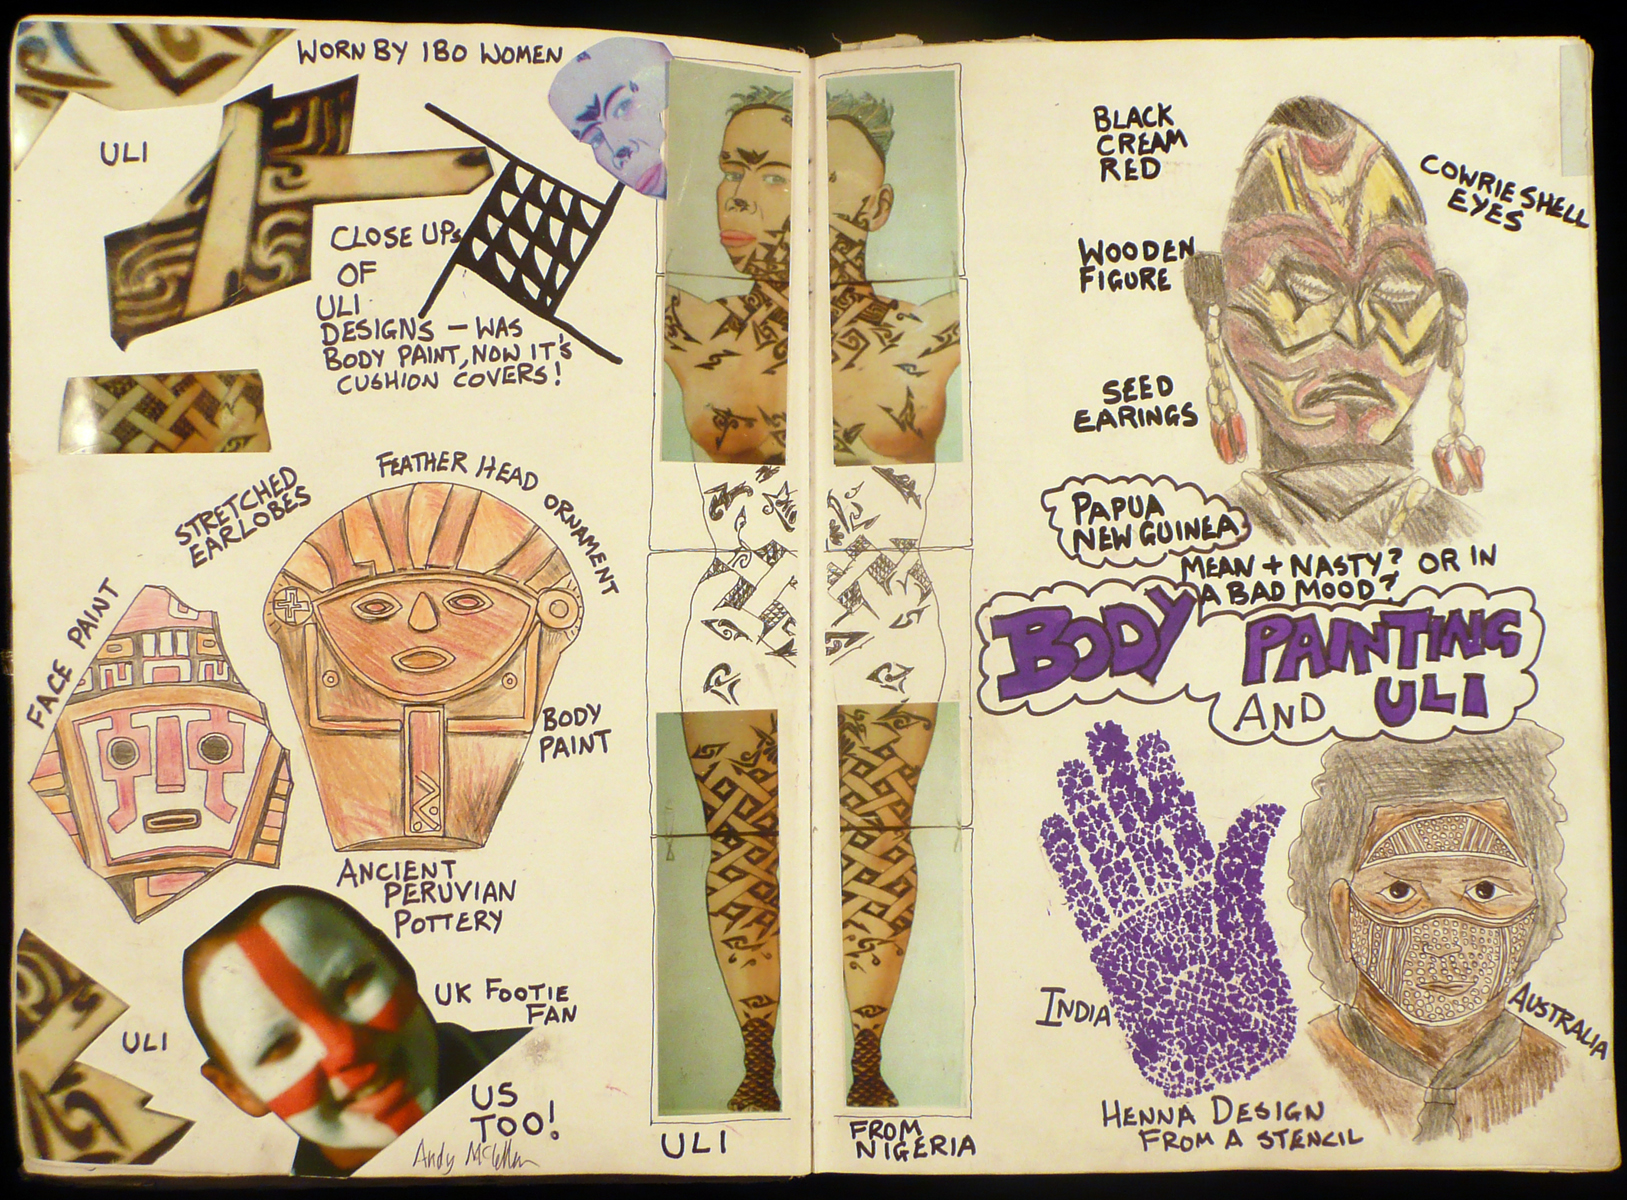 WORN BY IBO WOMEN
ULI
CLOSE UPs
OF
ULI
DESIGNS – WAS
BODY PAINT, NOW IT'S
CUSHION COVERS!
STRETCHED
EARLOBES
FEATHER HEAD ORNAMENT
FACE PAINT
BODY
PAINT
ANCIENT
PERUVIAN
POTTERY
UK FOOTIE
FAN
ULI
US
TOO!
ULI
FROM
NIGERIA
BLACK
CREAM
RED
COWRIE SHELL
EYES
WOODEN
FIGURE
SEED
EARINGS
PAPUA
NEW GUINEA
MEAN + NASTY? OR IN
A BAD MOOD?
BODY PAINTING
AND ULI
INDIA
AUSTRALIA
HENNA DESIGN
FROM A STENCIL